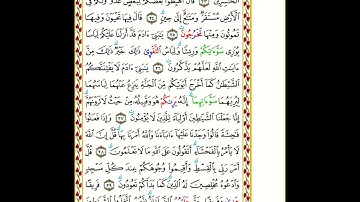 ٱلْخَٰسِرِينَ ٢٣ قَالَ ٱهْبِطُوا۟ بَعْضُكُمْ لِبَعْضٍ عَدُوٌّ وَلَكُمْ فِى
ٱلْأَرْضِ مُسْتَقَرٌّ وَمَتَٰعٌ إِلَىٰ حِينٍ ٢٤ قَالَ فِيهَا تَحْيَوْنَ وَفِيهَا
تَمُوتُونَ وَمِنْهَا تُخْرَجُونَ ٢٥ يَٰبَنِىٓ ءَادَمَ قَدْ أَنزَلْنَا عَلَيْكُمْ لِبَاسًا
يُوَٰرِى سَوْءَٰتِكُمْ وَرِيشًا وَلِبَاسُ ٱلتَّقْوَىٰ ذَٰلِكَ خَيْرٌ ذَٰلِكَ مِنْ
ءَايَٰتِ ٱللَّهِ لَعَلَّهُمْ يَذَّكَّرُونَ ٢٦ يَٰبَنِىٓ ءَادَمَ لَا يَفْتِنَنَّكُمُ
ٱلشَّيْطَٰنُ كَمَآ أَخْرَجَ أَبَوَيْكُم مِّنَ ٱلْجَنَّةِ يَنزِعُ عَنْهُمَا لِبَاسَهُمَا
لِيُرِيَهُمَا سَوْءَٰتِهِمَآ إِنَّهُۥ يَرَىٰكُمْ هُوَ وَقَبِيلُهُۥ مِنْ حَيْثُ لَا تَرَوْنَهُمْ
إِنَّا جَعَلْنَا ٱلشَّيَٰطِينَ أَوْلِيَآءَ لِلَّذِينَ لَا يُؤْمِنُونَ ٢٧ وَإِذَا فَعَلُوا۟
فَٰحِشَةً قَالُوا۟ وَجَدْنَا عَلَيْهَآ ءَابَآءَنَا وَٱللَّهُ أَمَرَنَا بِهَا قُلْ إِنَّ ٱللَّهَ
لَا يَأْمُرُ بِٱلْفَحْشَآءِ أَتَقُولُونَ عَلَى ٱللَّهِ مَا لَا تَعْلَمُونَ ٢٨ قُلْ
أَمَرَ رَبِّى بِٱلْقِسْطِ وَأَقِيمُوا۟ وُجُوهَكُمْ عِندَ كُلِّ مَسْجِدٍ
وَٱدْعُوهُ مُخْلِصِينَ لَهُ ٱلدِّينَ كَمَا بَدَأَكُمْ تَعُودُونَ ٢٩ فَرِيقًا